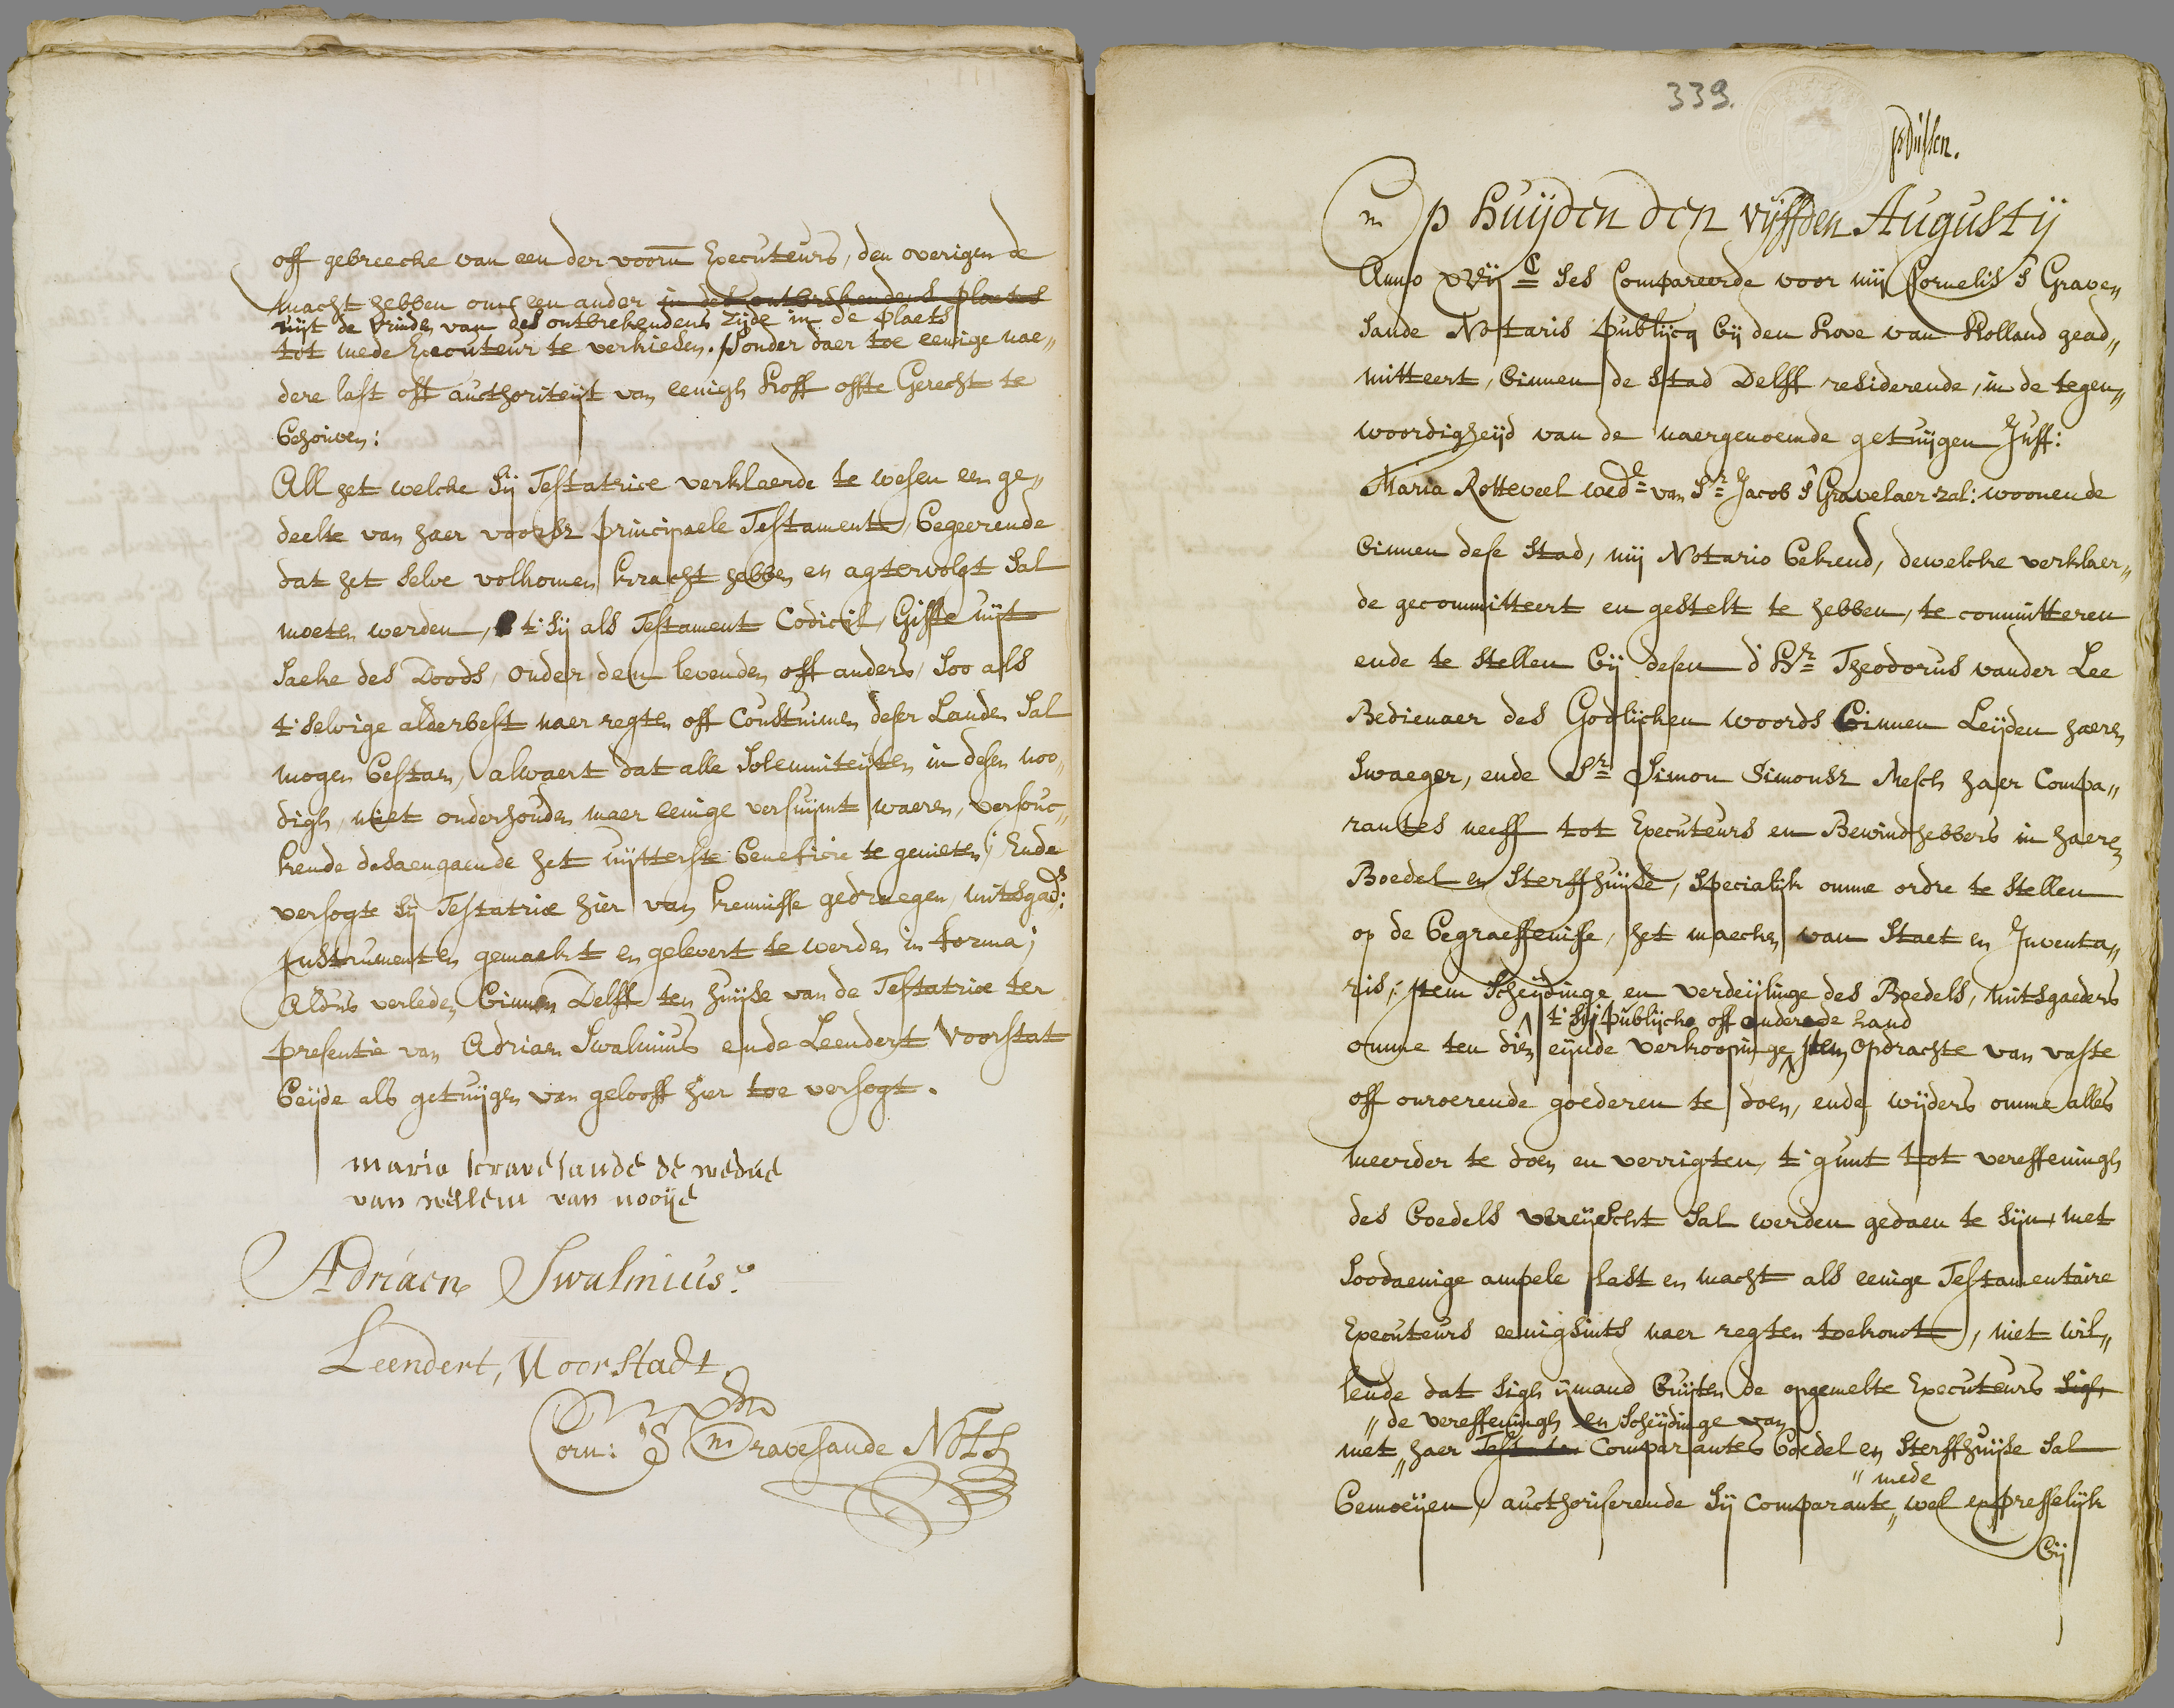 off gebreecke van een der voorn Executeurs, den overigen de
macht hebben om een ander in des ontbrekendens plaetse
uijt de vrinden van des ontbrekendens zijde in de plaets
tot mede Executeur te verkiesen. sonder daer toe eenige nae„
dere last oft authoriteijt van eenigh Hoff offte Gerecht te
behouven:
All het welcke sij Testatrice verklaerde te wesen een ge„
deelte van haer voorsz principaele Testament, begeerende
dat het selve volkomen kracht hebben en agtervolgt sal
moeten werden, t'sij als Testament Codicil, Giffte uijt
saeke des Doods, onder den levenden off anders, soo als
t'selvige alderbest naer regten off Coustuimen deser Landen sal
mogen bestaen, alwaert dat alle solemniteijten in desen noo„
digh, niet onderhouden maer eenige versuijmt waeren, versouc„
kende desaengaende het uijtterste beneficie te genieten; Ende
versogte sij Testatrice hier van kennisse gedraegen, mitsgads:
Instrumenten gemaekt en gelevert te werden in forma;
Aldus verleden binnen Delff ten huijse van de Testatrice ter
presentie van Adriaen Swalmius ende Leendert Voorstat
beijde als getuijgen van gelooff hier toe versogt.
maria scravesande de wedue
van wellem van nooije
Adriaen Swalmius.
Leendert, Voorstadt
Corn: S Gravesande Nots
339.
Op Huijden den vijffden Augustij
Anno XVIJ C ses Compareerde voor mij Cornelis s' Grave„
sande Notaris publijcq bij den Hove van Holland gead„
mitteert, binnen de stad Delff residerende, in de tegen„
woordigheijd van de naergenoemde getuijgen Juff:
Maria Rotteveel wede van Sr Jacob s' Gravelaer zal: woonende
binnen dese Stad, mij Notario bekend, dewelcke verklaer„
de gecommitteert en gestelt te hebben, te committeren
ende te stellen bij desen d'Hr Theodorus vander Lee
Bedienaer des Godlijcken woords binnen Leijden haeren
swaeger, ende Sr Simon Simonsz Mesch haer Compa„
rantes neeff tot Executeurs en Bewindhebbers in haeren
Boedel en Sterffhuijse, specialijk omme ordre te stellen
op de begraeffenisse, het maecken van Staet en Inventa„
ris, item scheijdinge en verdeijlinge des Boedels, mitsgaeders
t'sij publijcke off onder de hand
omme ten dien eijnde verkoopinge, item opdrachte van vaste
off onroerende goederen te doen, ende wijders omme alles
meerder te doen en verrigten, t'gunt tot vereffeningh
des boedels vereijscht sal werden gedaen te sijn, met
soodaenige ampele last en macht als eenige Testamentaire
Executeurs eenigsints naer regten toekomt, niet wil„
lende dat sigh ijmand buijten de opgemelte Executeurs sigh
„de vereffeningh en scheijdinge van
met „haer Testatr Comparantes boedel en sterffhuijse sal
„mede
bemoeijen, authoriserende sij Comparante „wel expresselijk
bij